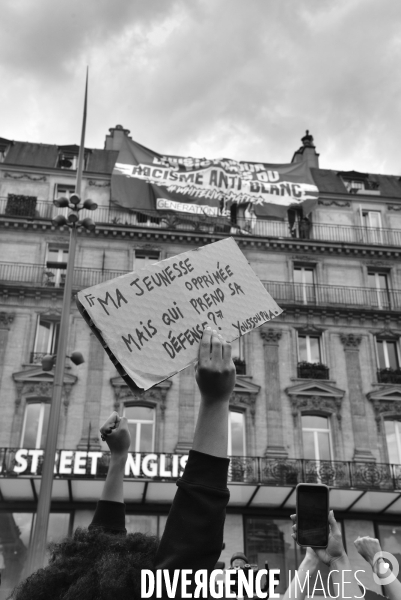 RACISME ANTI-BLANC
GÉNÉRATION
"MA JEUNESSE OPPRIMÉE
MAIS QUI PREND SA
DÉFENSE?" YOUSSOUPHA.
STREET ENGLIS
DIVERGENCE IMAGES